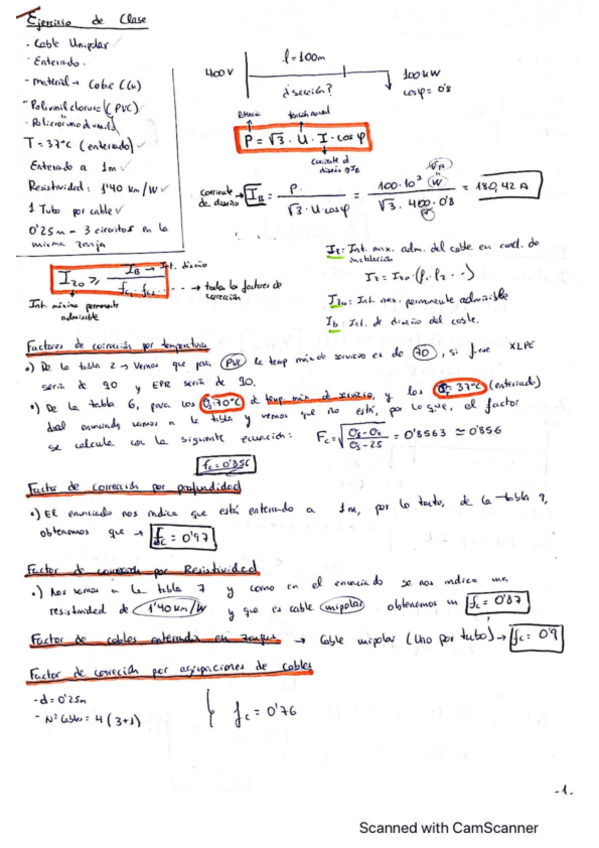 Ejercicio de Clase
- Cable Unipolar
- Enterrado.
- material → Cobre (Cu)
- Polivinil cloruro (PVC)
- Policloruro de vinilo
T = 37ºC (enterrado)
Enterrado a 1m
Resistividad: 1'40 Km/W
1 Tubo por cable
0'25m - 3 circuitos en la
misma zanja
l = 100m
400V
100 kW
cosφ = 0'8
¿sección?
Potencia
tensión nominal
P = √3 · U · I · cos φ
Corriente de
diseño IB
corriente
de diseño
IB = P / √3 · U cosφ = 100·10³ (W) / √3 · 400 · 0'8 = 180,42 A
Iz: Int. max. adm. del cable en cond. de
instalación
Iz = Iz0 · (f1 · f2 ···)
Iz0: Int. max. permanente admisible
Ib: Int. de diseño del cable.
Iz0 ≥ IB / fc1 · fc2 ···
→ Int. diseño
→ todos los factores de
corrección
Int. máxima permanente
admisible
Factores de corrección por temperatura
•) De la tabla 2 → Vemos que para PVC la temp máx de servicio es de 70, si fuese XLPE
sería de 90 y EPR sería de 90.
•) De la tabla 6, para los 70ºC de temp máx de servicio, y los 37ºC (enterrado)
del enunciado vamos a la tabla y vemos que no está, por lo que, el factor
se calcula con la siguiente ecuación: Fc = √ = 0'8563 ≃ 0'856
fc = 0'856
Factor de corrección por profundidad
•) El enunciado nos indica que está enterrado a 1m, por lo tanto, de la tabla 7,
obtenemos que → fc = 0'97
Factor de corrección por Resistividad
•) Nos vamos a la tabla 7 y como en el enunciado se nos indica una
resistividad de 1'40 Km/W y que es cable unipolar obtenemos un fc = 0'87
Factor de cables enterrados en zanjas → Cable unipolar (Uno por tubo) → fc = 0'9
Factor de corrección por agrupaciones de cables
- d = 0'25m
- Nº Cables = 4 (3+1)
fc = 0'76
-1.
Scanned with CamScanner